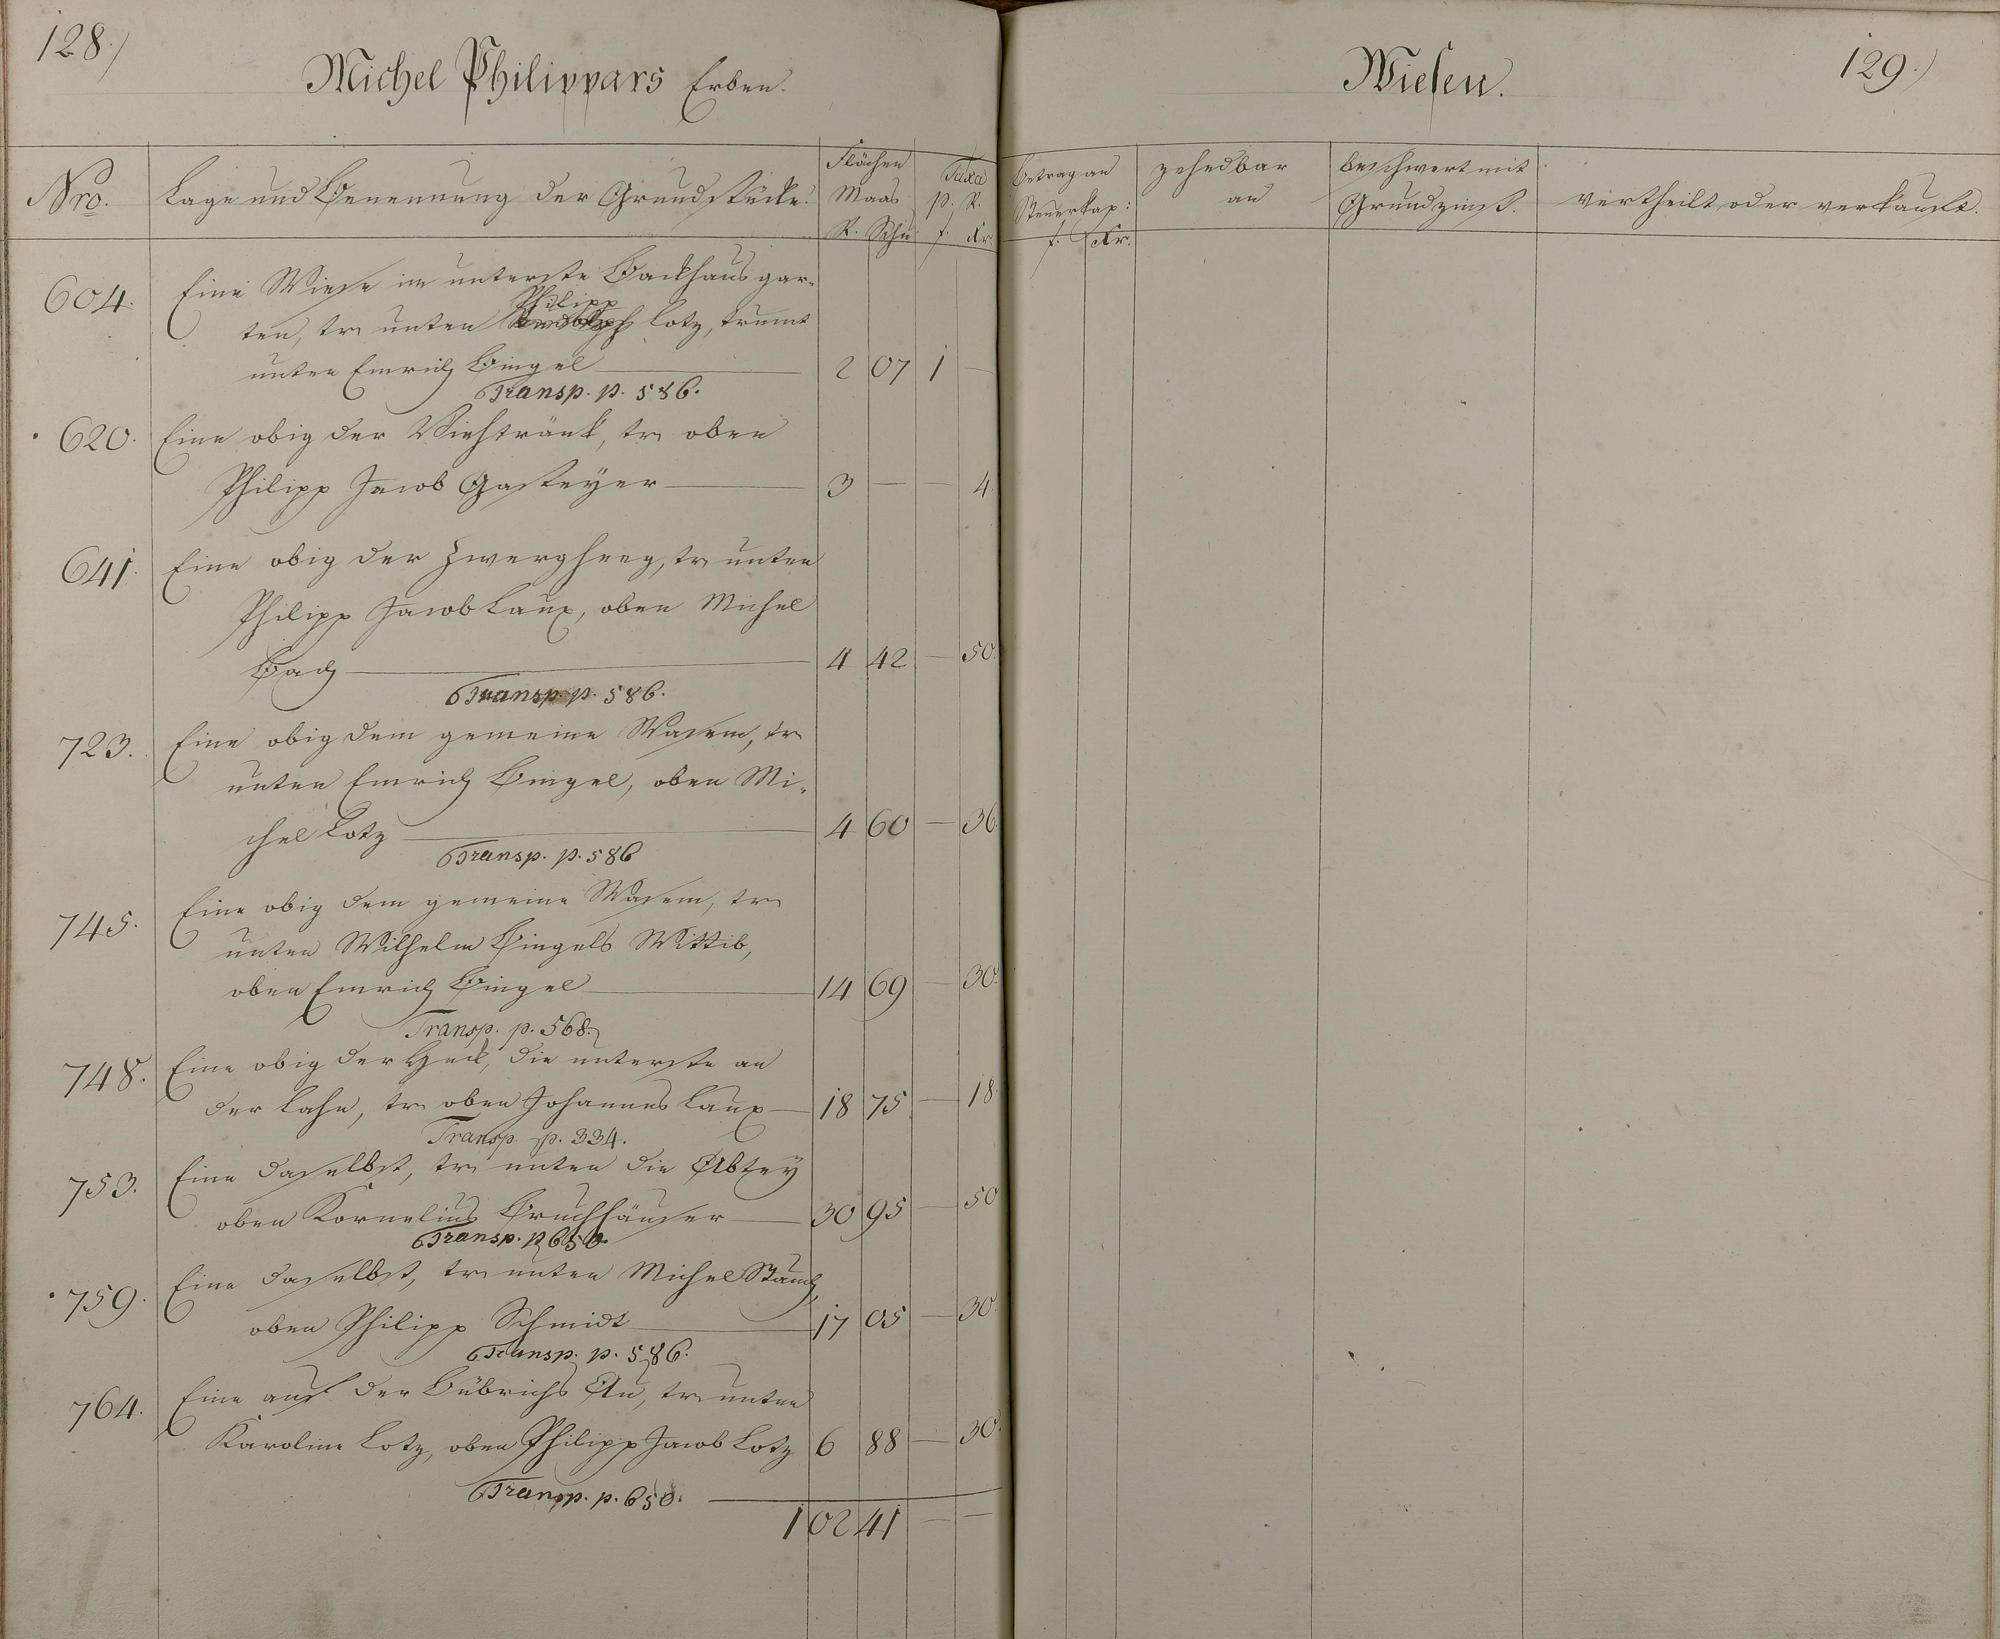 128.)
Michel Philippars Erben.
Nro.
Lage und Benennung der Grundstücke.
Flächen
Maas
R. Schu
Taxa
p. R.
f. Kr.
604.
Eine Wiese im unterste Backhausgar-
Philipp
ten, tr unten Lotz, trumt
unten Emrich Bingel 2 07 1 —
Transp. p. 586.
620. Eine obig der Viehtränk, tr oben
Philipp Jacob Gasteyer 3 — — 4.
641. Eine obig der Zwergheeg, tr unten
Philipp Jacob Laux, oben Michel
Bach 4 42 — 50.
Transp. p. 586.
723. Eine obig dem gemeine Wasem, tr
unten Emrich Bingel, oben Mi-
chel Lotz 4 60 — 36.
Transp. p. 586
745. Eine obig dem gemeine Wasem, tr
unten Wilhelm Bingels Wittib,
oben Emrich Bingel 14 69 — 30.
Transp. p. 568.
748. Eine obig der Heck, die unterste an
der Lahn, tr oben Johannes Laux 18 75 — 18.
Transp. p. 334.
753. Eine daselbst, tr unten die Abtey
oben Kornelius Bruchhäuser 30 95 — 50
Transp. p 650.
759. Eine daselbst, tr unten Michel Stauch,
oben Philipp Schmidt 17 05 — 30.
Transp. p. 586.
764. Eine auf der Bübrichs Au, tr unten
Karoline Lotz, oben Philipp Jacob Lotz 6 88 — 30.
Transp. p. 650.
102 41 — —
Wiesen.
129.)
Betrag an
Steuerkap:
f. Kr.
zehedbar
an
beschwert mit
Grundzinß.
vertheilt oder verkauft.